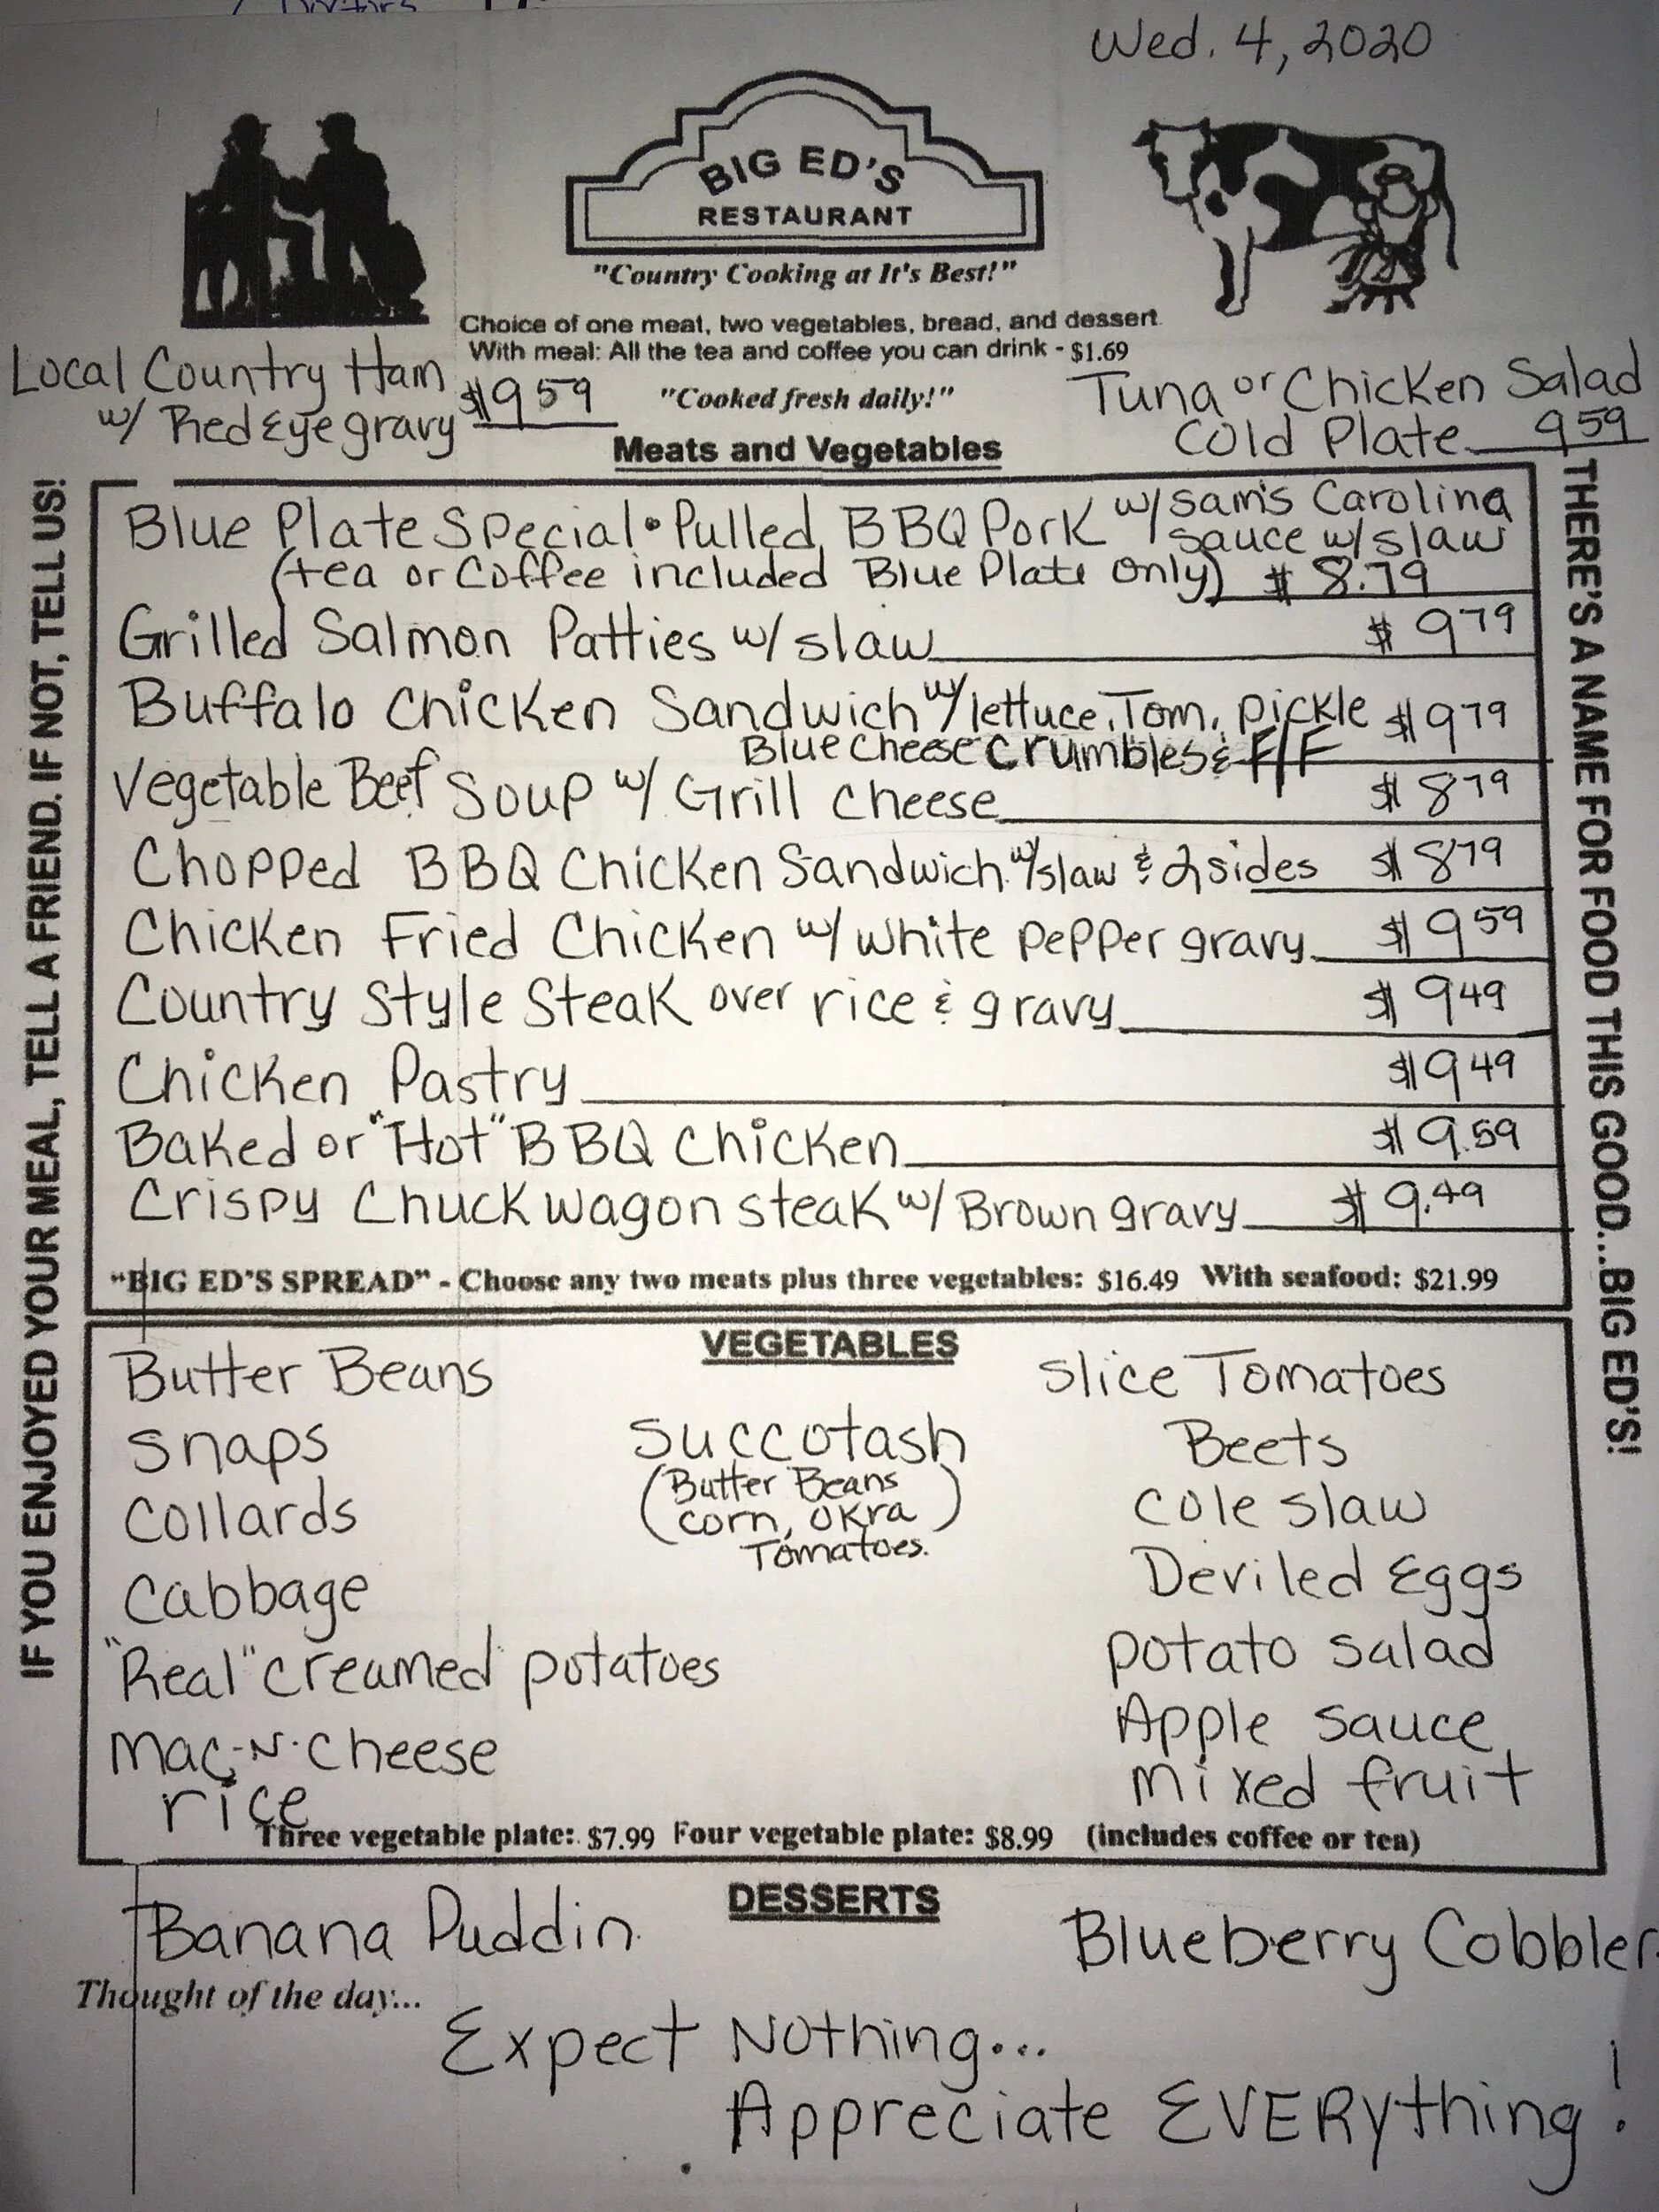 Wed. 4, 2020
BIG ED'S
RESTAURANT
"Country Cooking at It's Best!"
Choice of one meat, two vegetables, bread, and dessert
With meal: All the tea and coffee you can drink - $1.69
"Cooked fresh daily!"
Local Country Ham
w/ Red Eye gravy $9 59
Tuna or Chicken Salad
Cold Plate 9 59
Meats and Vegetables
IF YOU ENJOYED YOUR MEAL, TELL A FRIEND. IF NOT, TELL US!
THERE'S A NAME FOR FOOD THIS GOOD...BIG ED'S!
Blue Plate Special • Pulled BBQ Pork w/ Sam's Carolina
sauce w/ slaw
(tea or Coffee included Blue Plate Only) $ 8.79
Grilled Salmon Patties w/ slaw $ 9 79
Buffalo Chicken Sandwich w/ lettuce, Tom, pickle $ 9 79
Blue Cheese Crumbles & F/F
Vegetable Beef Soup w/ Grill Cheese $ 8 79
Chopped BBQ Chicken Sandwich w/ slaw & 2 sides $ 8 79
Chicken Fried Chicken w/ White Pepper gravy $ 9 59
Country Style Steak over rice & gravy $ 9 49
Chicken Pastry $ 9 49
Baked or "Hot" BBQ Chicken $ 9.59
Crispy Chuck wagon steak w/ Brown gravy $ 9.49
"BIG ED'S SPREAD" - Choose any two meats plus three vegetables: $16.49 With seafood: $21.99
VEGETABLES
Butter Beans
Snaps
Collards
Cabbage
"Real" creamed potatoes
Mac-N-Cheese
rice
Succotash
(Butter Beans
corn, Okra)
Tomatoes.
Slice Tomatoes
Beets
Cole slaw
Deviled Eggs
Potato Salad
Apple Sauce
Mixed fruit
Three vegetable plate: $7.99 Four vegetable plate: $8.99 (includes coffee or tea)
DESSERTS
Banana Puddin
Blueberry Cobbler
Thought of the day...
Expect Nothing...
Appreciate EVERything!